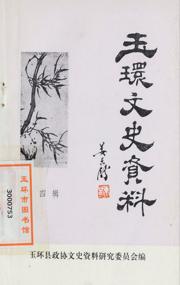 玉環文史資料
四辑
玉环市图书馆
3000753
玉环县政协文史资料研究委员会编